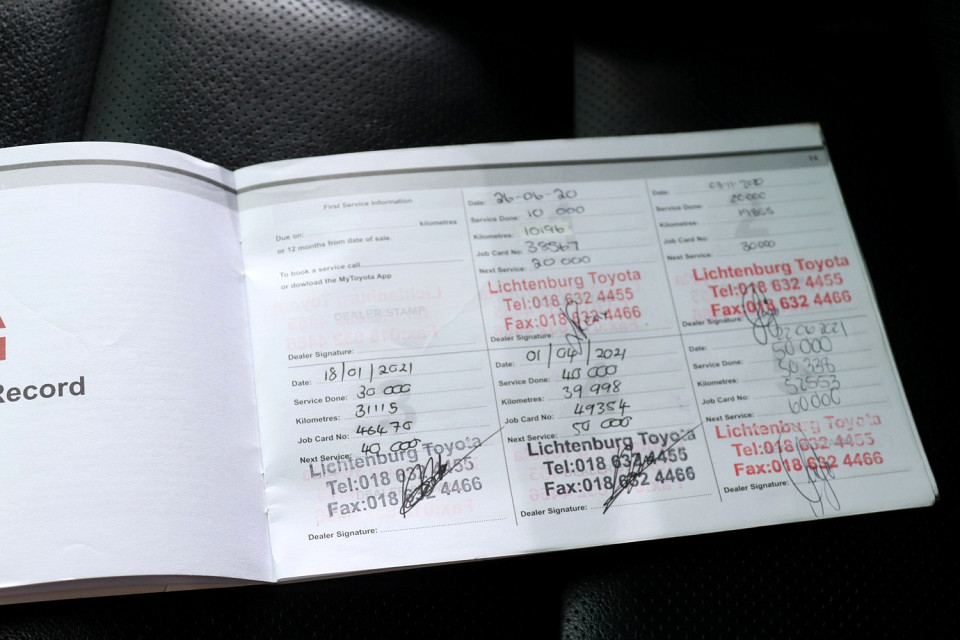 Record
First Service Information
Due on:
Kilometres
or 12 months from date of sale.
To book a service call
or dowload the MyToyota App
DEALER STAMP
Dealer Signature:
Date: 26-06-20
Service Done: 10 000
Kilometres: 10196
Job Card No: 38567
Next Service: 20 000
Lichtenburg Toyota
Tel:018 632 4455
Fax:018 632 4466
Dealer Signature:
Date:
Service Done: 20000
Kilometres:
Job Card No:
Next Service: 30000
Lichtenburg Toyota
Tel:018 632 4455
Fax:018 632 4466
Dealer Signature:
Date: 18/01/2021
Service Done: 30 000
Kilometres: 31115
Job Card No: 46470
Next Service: 40 000
Lichtenburg Toyota
Tel:018 632 4455
Fax:018 632 4466
Dealer Signature:
Date: 01/04/2021
Service Done: 40 000
Kilometres: 39 998
Job Card No: 49354
Next Service: 50 000
Lichtenburg Toyota
Tel:018 632 4455
Fax:018 632 4466
Dealer Signature:
Date: 02 06 2021
Service Done: 50 000
Kilometres: 50 338
Job Card No:
Next Service: 60000
Lichtenburg Toyota
Tel:018 632 4455
Fax:018 632 4466
Dealer Signature: